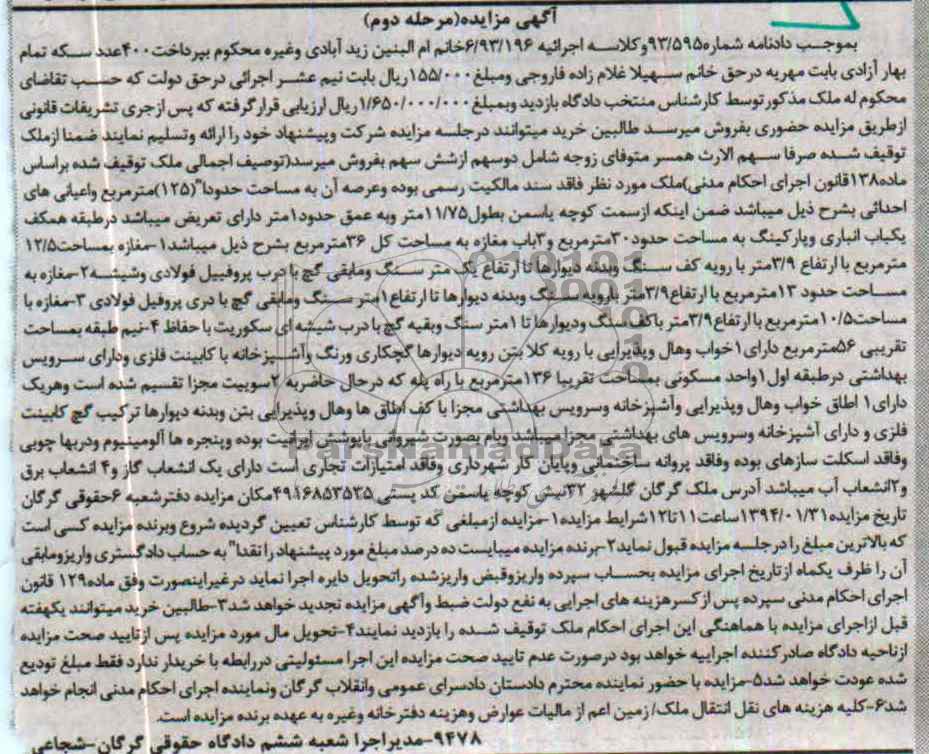 آگهی مزایده(مرحله دوم)
بموجب دادنامه شماره۹۳/۵۹۵وکلاسه اجرائیه ۶/۹۳/۱۹۶خانم ام البنین زید آبادی وغیره محکوم بپرداخت۴۰۰عدد سکه تمام
بهار آزادی بابت مهریه درحق خانم سهیلا غلام زاده فاروجی ومبلغ۱۵۵/۰۰۰ریال بابت نیم عشر اجرائی درحق دولت که حسب تقاضای
محکوم له ملک مذکور توسط کارشناس منتخب دادگاه بازدید وبمبلغ۱/۶۵۰/۰۰۰/۰۰۰ریال ارزیابی قرار گرفته که پس ازجری تشریفات قانونی
ازطریق مزایده حضوری بفروش میرسد طالبین خرید میتوانند درجلسه مزایده شرکت وپیشنهاد خود را ارائه وتسلیم نمایند ضمنا ازملک
توقیف شده صرفا سهم الارث همسر متوفای زوجه شامل دوسهم ازشش سهم بفروش میرسد(توصیف اجمالی ملک توقیف شده براساس
ماده۱۳۸قانون اجرای احکام مدنی)ملک مورد نظر فاقد سند مالکیت رسمی بوده وعرصه آن به مساحت حدودا"(۱۲۵)مترمربع واعیانی های
احداثی بشرح ذیل میباشد ضمن اینکه ازسمت کوچه یاسمن بطول۱۱/۷۵متر وبه عمق حدود۱متر دارای تعریض میباشد درطبقه همکف
یکباب انباری وپارکینگ به مساحت حدود۳۰مترمربع و۳باب مغازه به مساحت کل ۳۶مترمربع بشرح ذیل میباشد۱-مغازه بمساحت۱۲/۵
مترمربع با ارتفاع ۳/۹متر با رویه کف سنگ وبدنه دیوارها تا ارتفاع یک متر سنگ ومابقی گچ با درب پروفیل فولادی وشیشه۲-مغازه به
مساحت حدود ۱۳مترمربع با ارتفاع۳/۹متر بارویه سنگ وبدنه دیوارها تا ارتفاع۱متر سنگ ومابقی گچ با دری پروفیل فولادی ۳-مغازه با
مساحت۱۰/۵مترمربع با ارتفاع۳/۹متر باکف سنگ ودیوارها تا ۱متر سنگ وبقیه گچ با درب شیشه ای سکوریت با حفاظ ۴-نیم طبقه بمساحت
تقریبی ۵۶مترمربع دارای۱خواب وهال وپذیرایی با رویه کلا بتن رویه دیوارها گچکاری ورنگ وآشپزخانه با کابینت فلزی ودارای سرویس
بهداشتی درطبقه اول۱واحد مسکونی بمساحت تقریبا ۱۳۶مترمربع با راه پله که درحال حاضربه ۲سوییت مجزا تقسیم شده است وهریک
دارای۱ اطاق خواب وهال وپذیرایی وآشپزخانه وسرویس بهداشتی مجزا با کف اطاق ها وهال وپذیرایی بتن وبدنه دیوارها ترکیب گچ کابینت
فلزی و دارای آشپزخانه وسرویس های بهداشتی مجزا میباشد وبام بصورت شیروانی باپوشش ایرانیت بوده وپنجره ها آلومینیوم ودربها چوبی
وفاقد اسکلت سازهای بوده وفاقد پروانه ساختمانی وپایان کار شهرداری وفاقد امتیازات تجاری است دارای یک انشعاب گاز و۴ انشعاب برق
و۲انشعاب آب میباشد آدرس ملک گرگان گلشهر ۳۲نبش کوچه یاسمن کد پستی ۴۹۱۶۸۵۳۵۳۵مکان مزایده دفترشعبه ۶حقوقی گرگان
تاریخ مزایده۱۳۹۴/۰۱/۳۱ساعت۱۱تا۱۲شرایط مزایده۱-مزایده ازمبلغی که توسط کارشناس تعیین گردیده شروع وبرنده مزایده کسی است
که بالاترین مبلغ را درجلسه مزایده قبول نماید۲-برنده مزایده میبایست ده درصد مبلغ مورد پیشنهاد را نقدا" به حساب دادگستری واریزومابقی
آن را ظرف یکماه ازتاریخ اجرای مزایده بحساب سپرده واریزوقبض واریزشده راتحویل دایره اجرا نماید درغیراینصورت وفق ماده۱۲۹ قانون
اجرای احکام مدنی سپرده پس ازکسرهزینه های اجرایی به نفع دولت ضبط وآگهی مزایده تجدید خواهد شد۳-طالبین خرید میتوانند یکهفته
قبل ازاجرای مزایده با هماهنگی این اجرای احکام ملک توقیف شده را بازدید نمایند۴-تحویل مال مورد مزایده پس ازتایید صحت مزایده
ازناحیه دادگاه صادرکننده اجراییه خواهد بود درصورت عدم تایید صحت مزایده این اجرا مسئولیتی دررابطه با خریدار ندارد فقط مبلغ تودیع
شده عودت خواهد شد۵-مزایده با حضور نماینده محترم دادستان دادسرای عمومی وانقلاب گرگان ونماینده اجرای احکام مدنی انجام خواهد
شد۶-کلیه هزینه های نقل انتقال ملک/زمین اعم از مالیات عوارض وهزینه دفترخانه وغیره به عهده برنده مزایده است.
۹۴۷۸-مدیراجرا شعبه ششم دادگاه حقوقی گرگان-شجاعی
ParsNamadData